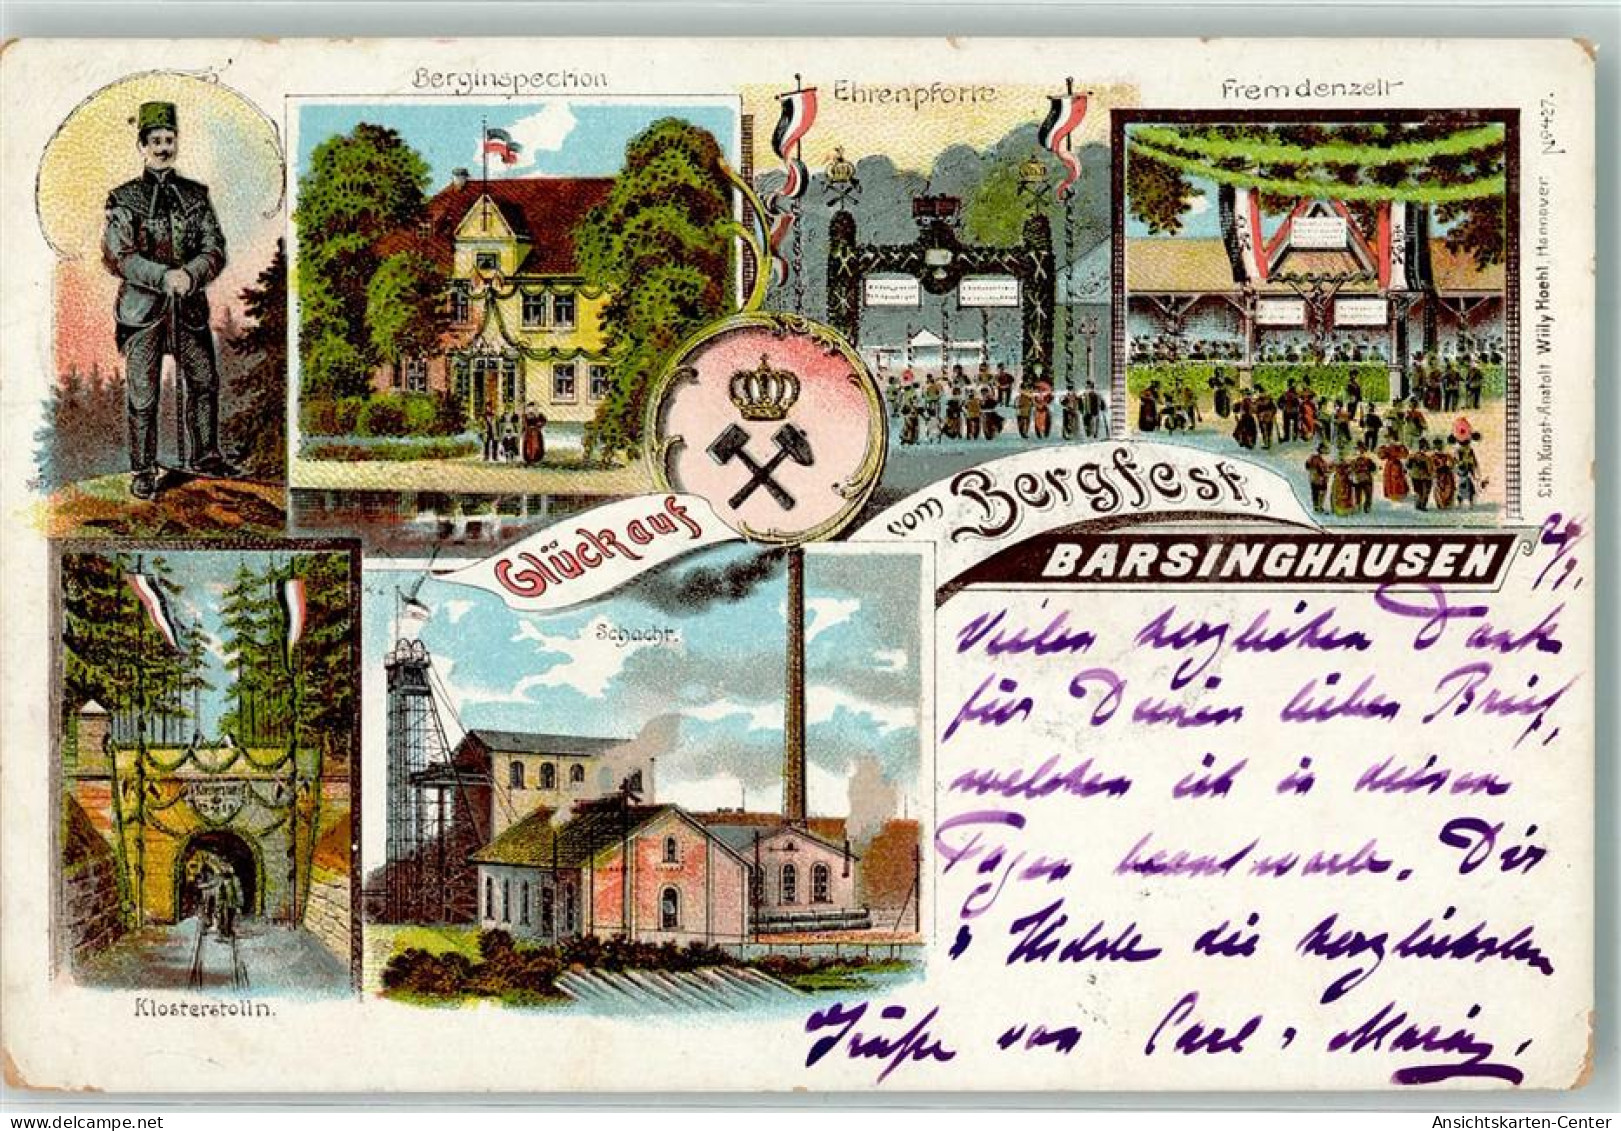 Berginspection
Ehrenpforte
Fremdenzelt
Lith. Kunst-Anstalt Willy Hoehl, Hannover. No 427.
Glückauf
vom Bergfest,
BARSINGHAUSEN
Schacht.
Klosterstolln.
Vielen herzlichen Dank
für Deinen lieben Brief,
welchen ich in diesen
Tagen beantworte. Dir
Hedde die herzlichsten
Grüße von Carl
Ansichtskarten-Center